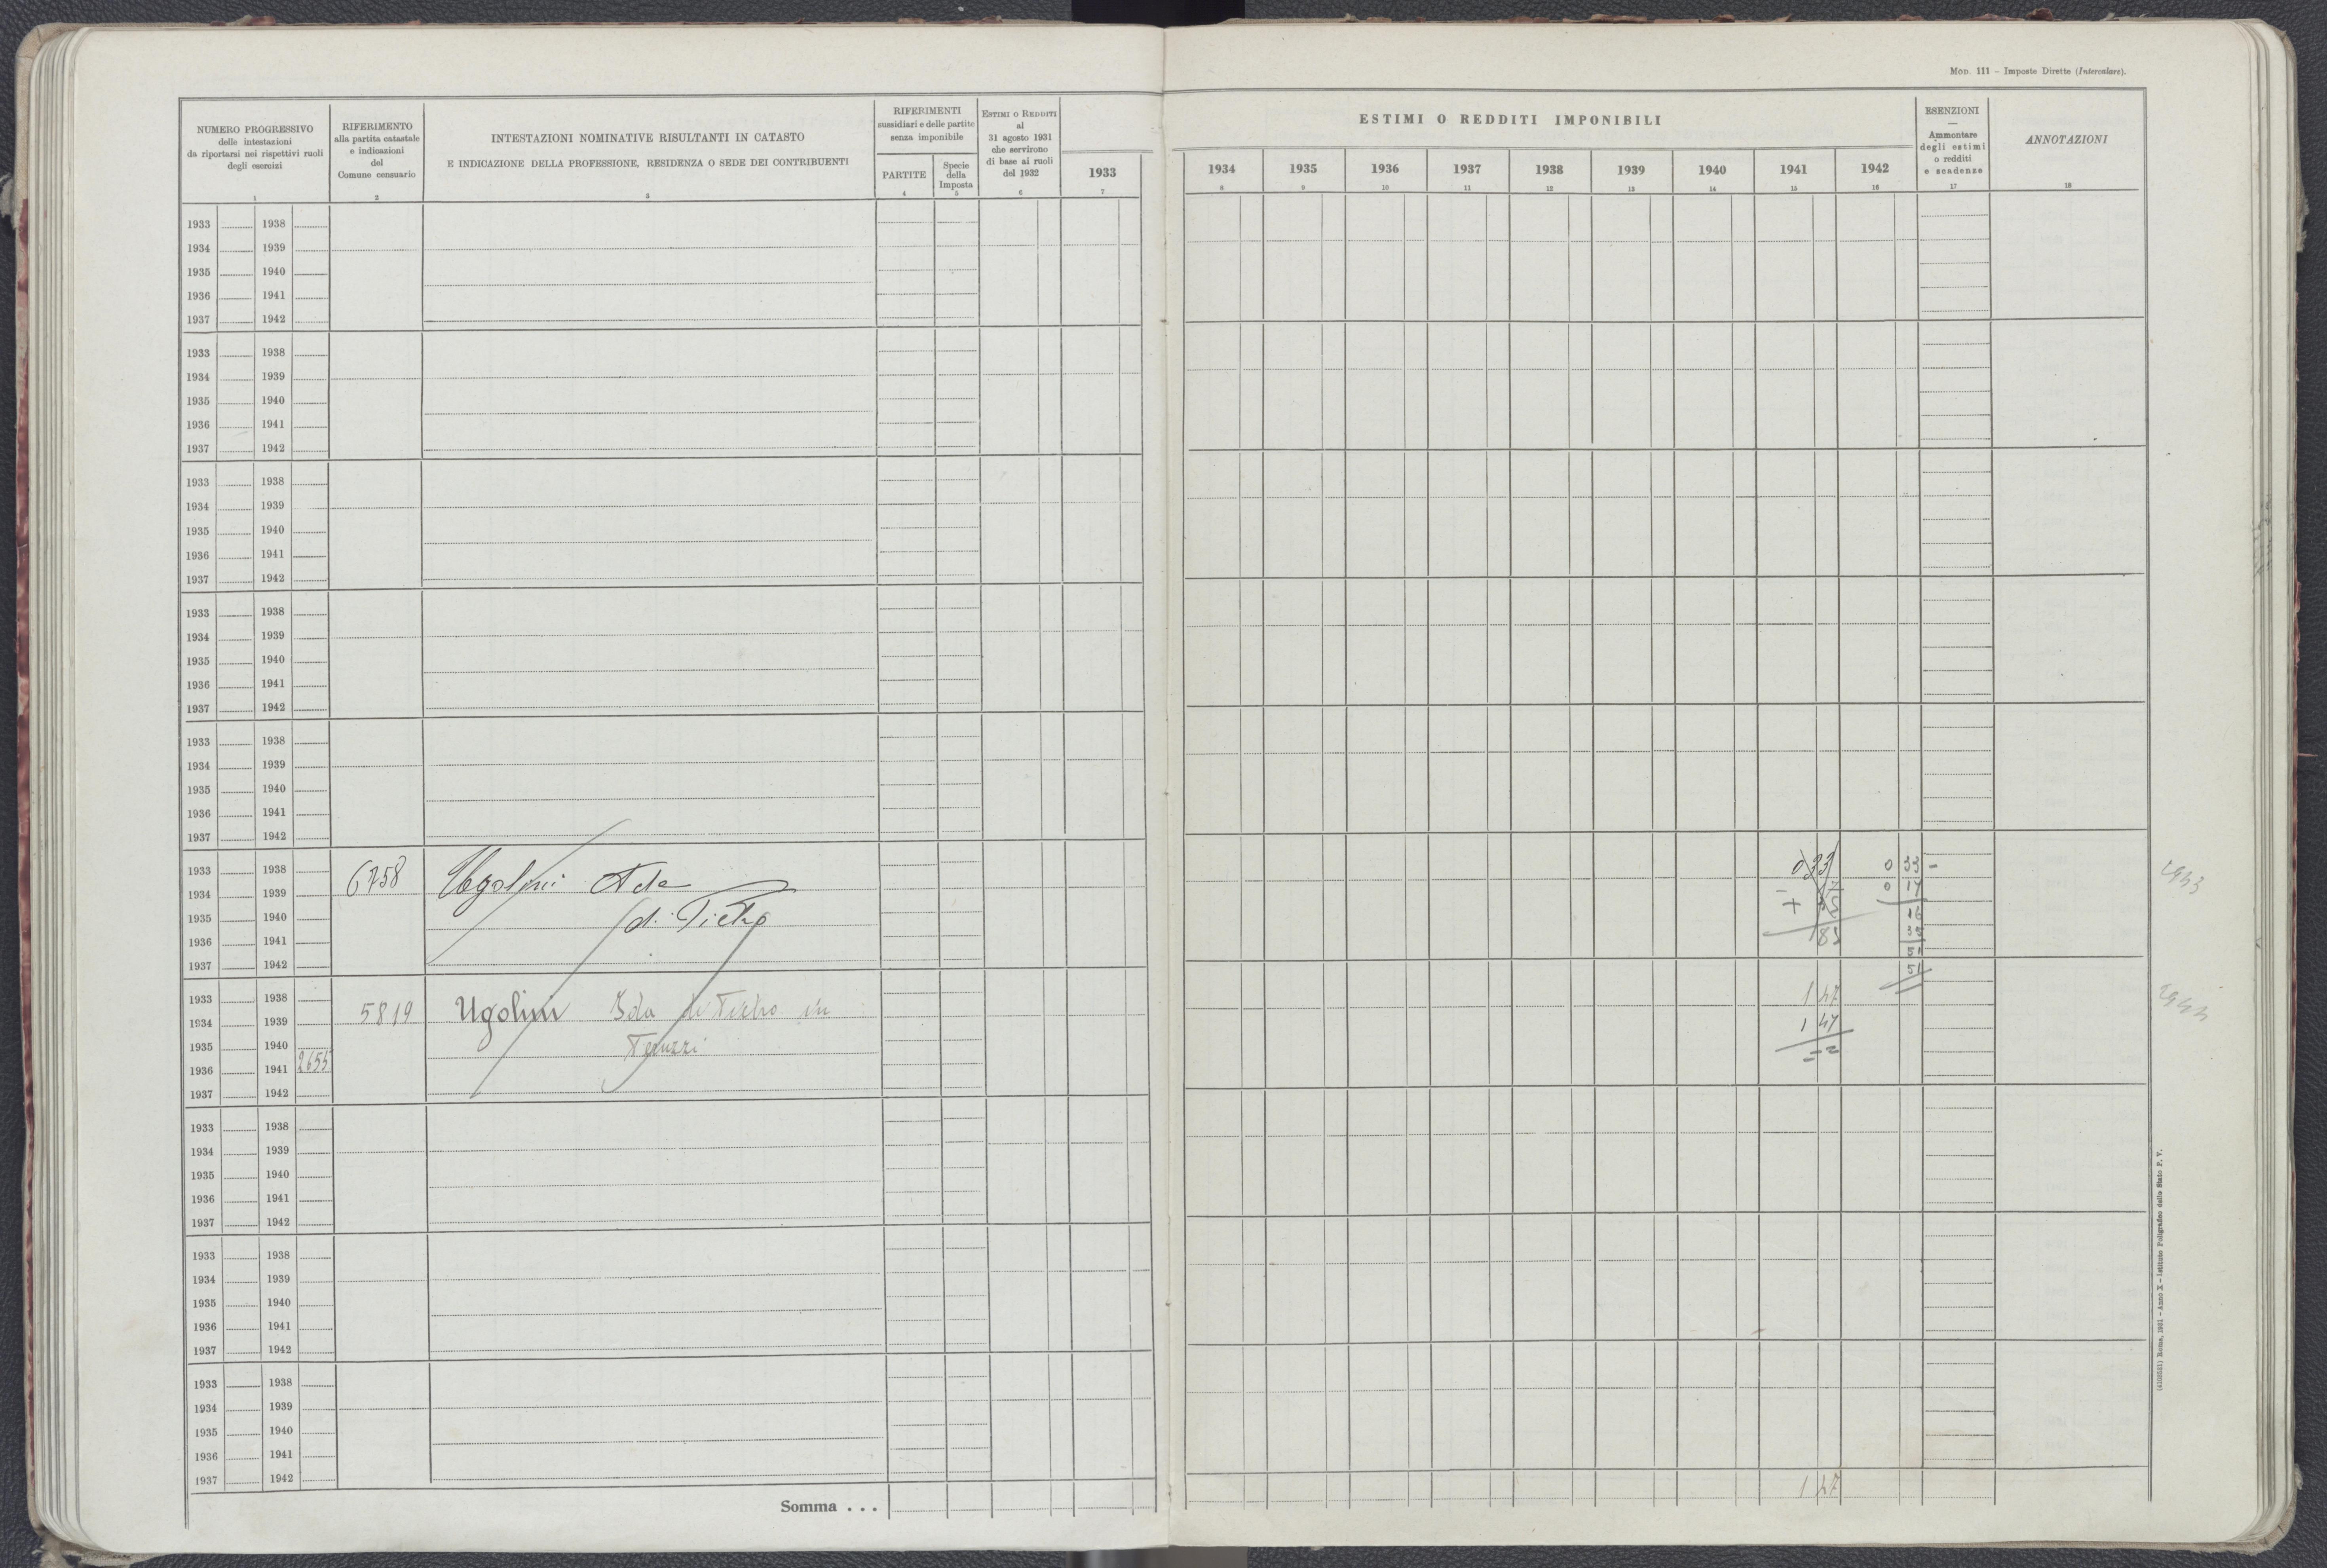 MOD. 111 – Imposte Dirette (Intercalare).
NUMERO PROGRESSIVO
delle intestazioni
da riportarsi nei rispettivi ruoli
degli esercizi
1
RIFERIMENTO
alla partita catastale
e indicazioni
del
Comune censuario
2
INTESTAZIONI NOMINATIVE RISULTANTI IN CATASTO
E INDICAZIONE DELLA PROFESSIONE, RESIDENZA O SEDE DEI CONTRIBUENTI
3
RIFERIMENTI
sussidiari e delle partite
senza imponibile
PARTITE
4
Specie
della
Imposta
5
ESTIMI O REDDITI
al
31 agosto 1931
che servirono
di base ai ruoli
del 1932
6
1933
7
ESTIMI O REDDITI IMPONIBILI
1934 1935 1936 1937 1938 1939 1940 1941 1942
8 9 10 11 12 13 14 15 16
ESENZIONI
—
Ammontare
degli estimi
o redditi
e scadenze
17
ANNOTAZIONI
18
1933 1938
1934 1939
1935 1940
1936 1941
1937 1942
1933 1938
1934 1939
1935 1940
1936 1941
1937 1942
1933 1938
1934 1939
1935 1940
1936 1941
1937 1942
1933 1938
1934 1939
1935 1940
1936 1941
1937 1942
1933 1938
1934 1939
1935 1940
1936 1941
1937 1942
1933 1938
1934 1939
1935 1940
1936 1941
1937 1942
6758
Ugolini Ada
di Pietro
0 33
83
0 33 –
0 17
16
35
51
51
1933 1938
1934 1939
1935 1940
1936 1941 2655
1937 1942
5819
Ugolini Ida di Pietro in
Peruzzi
1 47
1 47
1933 1938
1934 1939
1935 1940
1936 1941
1937 1942
1933 1938
1934 1939
1935 1940
1936 1941
1937 1942
1933 1938
1934 1939
1935 1940
1936 1941
1937 1942
Somma . . .
1 47
Roma, 1931 – Anno X – Istituto Poligrafico dello Stato P. V.